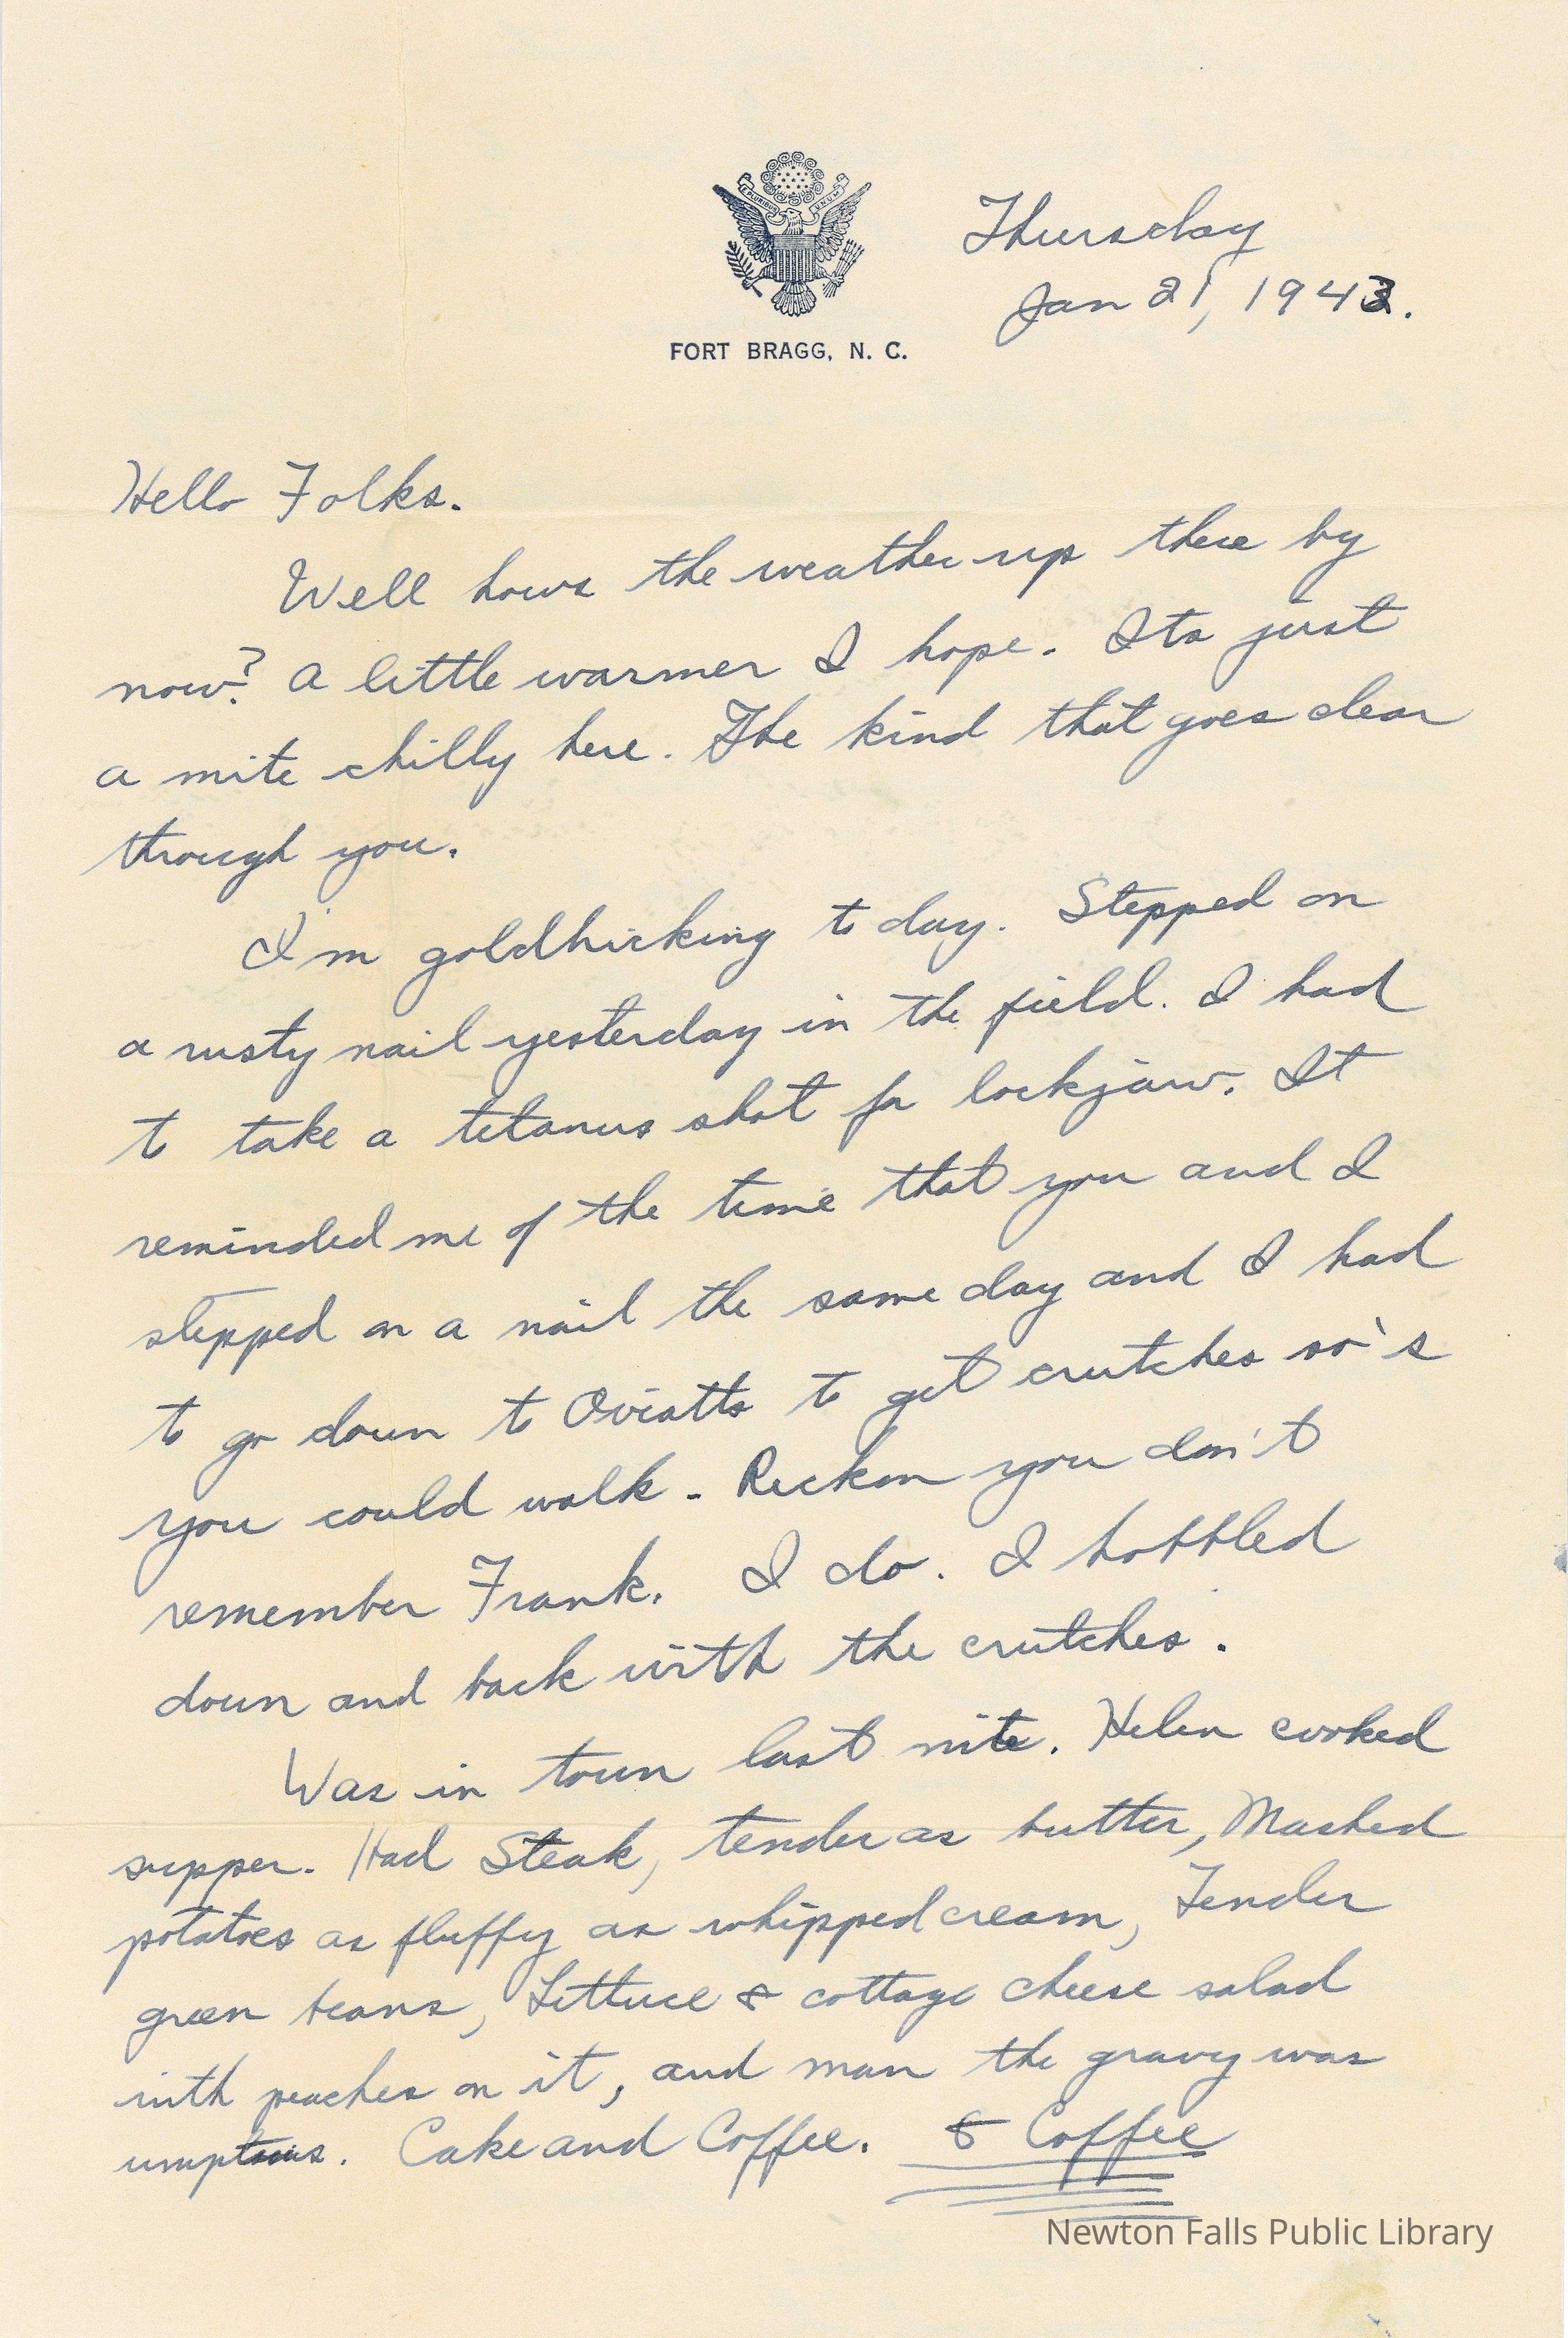 E PLURIBUS UNUM
FORT BRAGG, N. C.
Thursday
Jan 21, 1943.
Hello Folks.
Well hows the weather up there by
now? A little warmer I hope. Its just
a mite chilly here. The kind that goes clear
through you.
I'm goldbricking to day. Stepped on
a rusty nail yesterday in the field. I had
to take a tetanus shot for lockjaw. It
reminded me of the time that you and I
stepped on a nail the same day and I had
to go down to Oviatts to get crutches so's
you could walk. Reckon you don't
remember Frank. I do. I hobbled
down and back with the crutches.
Was in town last nite. Helen cooked
supper. Had Steak, tender as butter, Mashed
potatoes as fluffy as whipped cream, Tender
green beans, Lettuce & cottage cheese salad
with peaches on it, and man the gravy was
umptious. Cake and Coffee. & Coffee
Newton Falls Public Library